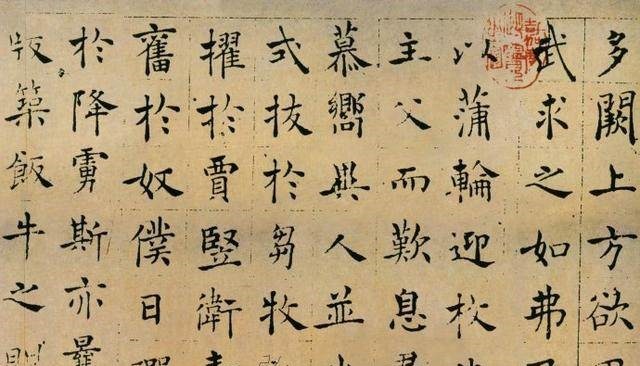 多闕上方欲
武求之如弗
以蒲輪迎枚
主父而歎息
慕嚮異人並
式拔於芻牧
擢於賈豎衛青
奮於奴僕日磾
於降虜斯亦曩
版築飯牛之朋